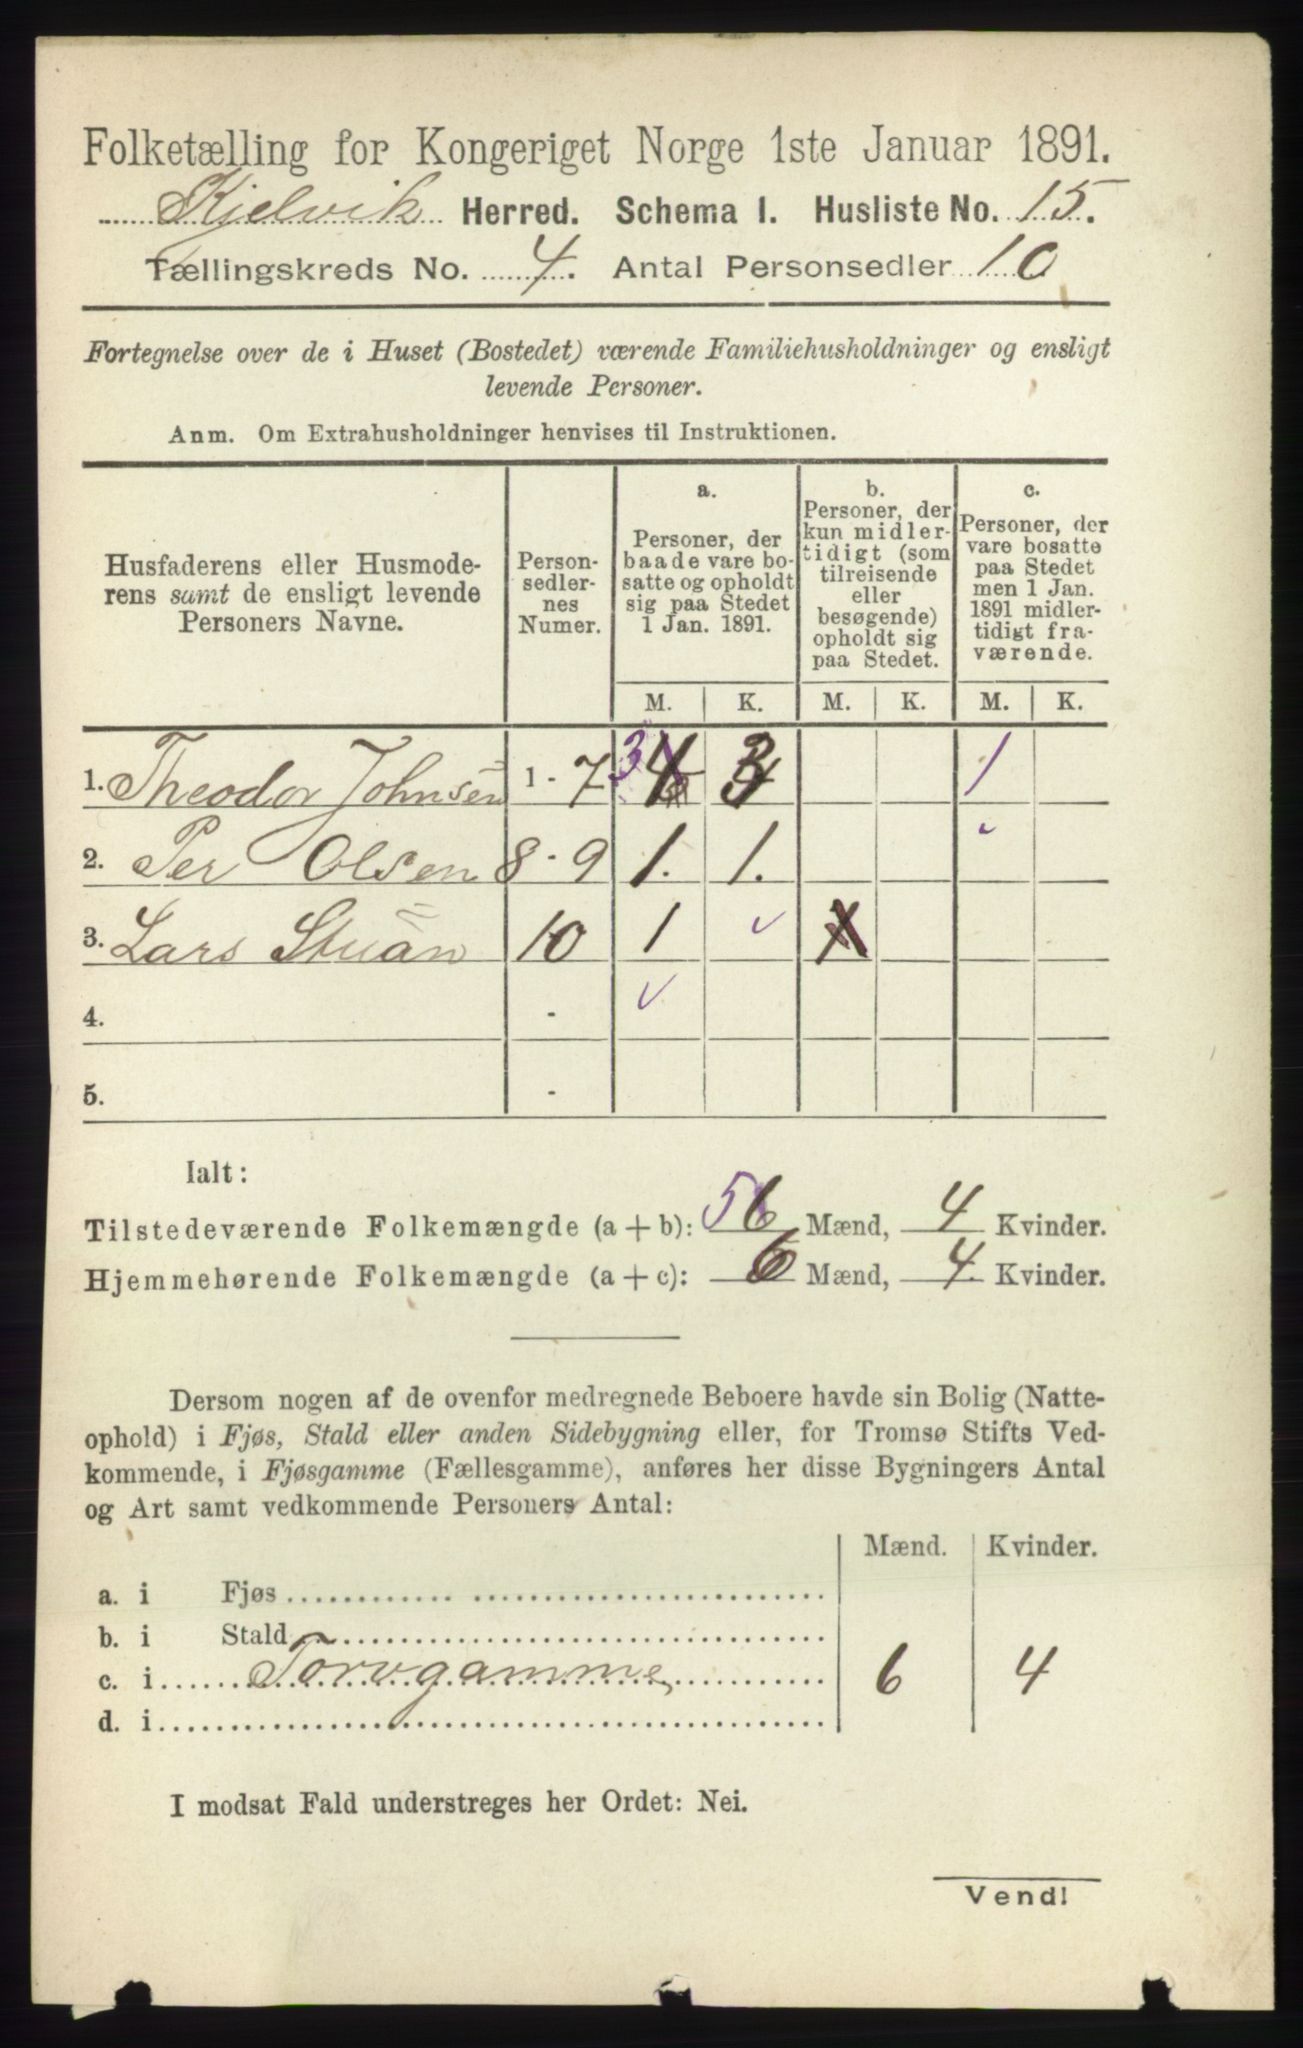 Folketælling for Kongeriget Norge 1ste Januar 1891.
Kjelvik Herred. Schema I. Husliste No. 15.
Tællingskreds No. 4. Antal Personsedler 10
Fortegnelse over de i Huset (Bostedet) værende Familiehusholdninger og ensligt
levende Personer.
Anm. Om Extrahusholdninger henvises til Instruktionen.
Husfaderens eller Husmode-
rens samt de ensligt levende
Personers Navne.
Person-
sedler-
nes
Numer.
a.
Personer, der
baade vare bo-
satte og opholdt
sig paa Stedet
1 Jan. 1891.
b.
Personer, der
kun midler-
tidigt (som
tilreisende
eller
besøgende)
opholdt sig
paa Stedet.
c.
Personer, der
vare bosatte
paa Stedet
men 1 Jan.
1891 midler-
tidigt fra-
værende.
M. K. M. K. M. K.
1. Theodor Johnsen 1 - 7 3 4 3 1
2. Per Olsen 8 - 9 1. 1.
3. Lars 10 1 1
4. -
5. -
Ialt:
Tilstedeværende Folkemængde (a + b): 5 6 Mænd, 4 Kvinder.
Hjemmehørende Folkemængde (a + c): 6 Mænd, 4 Kvinder.
Dersom nogen af de ovenfor medregnede Beboere havde sin Bolig (Natte-
ophold) i Fjøs, Stald eller anden Sidebygning eller, for Tromsø Stifts Ved-
kommende, i Fjøsgamme (Fællesgamme), anføres her disse Bygningers Antal
og Art samt vedkommende Personers Antal:
Mænd. Kvinder.
a. i Fjøs
b. i Stald
c. i Torvgamme 6 4
d. i
I modsat Fald understreges her Ordet: Nei.
Vend!